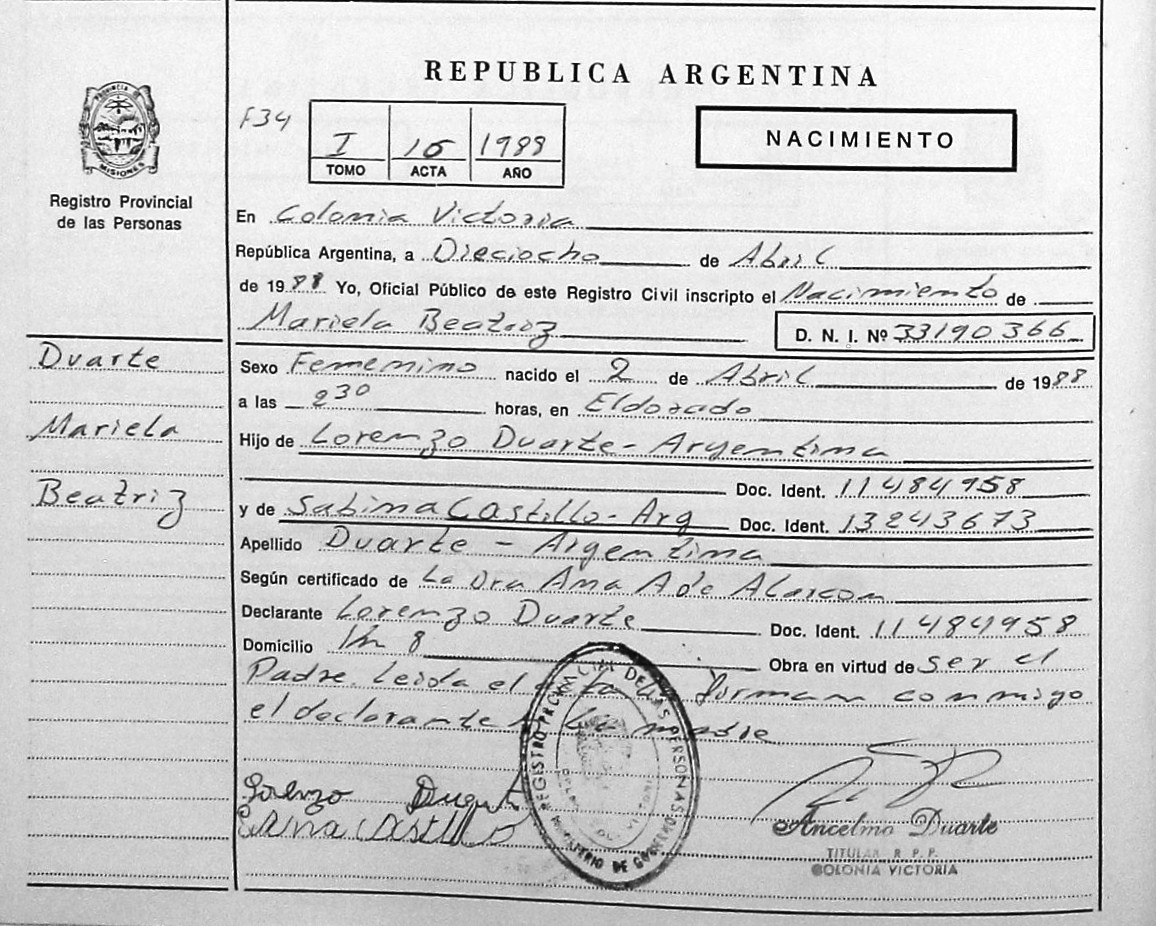 REPUBLICA ARGENTINA
PROVINCIA DE
MISIONES
Registro Provincial
de las Personas
F34
I
1988
TOMO
ACTA
AÑO
NACIMIENTO
En Colonia Victoria
República Argentina, a Dieciocho de Abril
de 1988 Yo, Oficial Público de este Registro Civil inscripto el Nacimiento de
Mariela Beatriz
D. N. I. Nº 33190366
Duarte
Mariela
Beatriz
Sexo Femenino nacido el 2 de Abril de 1988
a las 230 horas, en Eldorado
Hijo de Lorenzo Duarte - Argentina
Doc. Ident. 11484958
y de Sabina Castillo - Arg Doc. Ident. 13243673
Apellido Duarte - Argentina
Según certificado de La Dra Ana A de Alarcon
Declarante Lorenzo Duarte Doc. Ident. 11484958
Domicilio Km 8 Obra en virtud de ser el
Padre Leida el acta la firman conmigo
el declarante y la madre
REGISTRO PROVINCIAL DE LAS PERSONAS
MINISTERIO DE GOBIERNO
Lorenzo Duarte
Castillo
Ancelmo Duarte
TITULAR R. P. P.
COLONIA VICTORIA